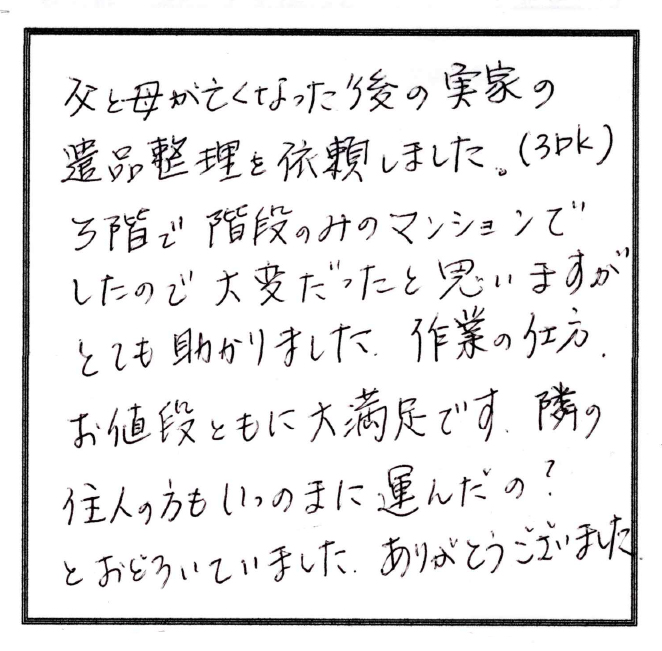 父と母が亡くなった後の実家の
遺品整理を依頼しました。(3DK)
3階で階段のみのマンションで
したので大変だったと思いますが
とても助かりました. 作業の仕方.
お値段ともに大満足です. 隣の
住人の方もいつのまに運んだの?
とおどろいていました. ありがとうございました